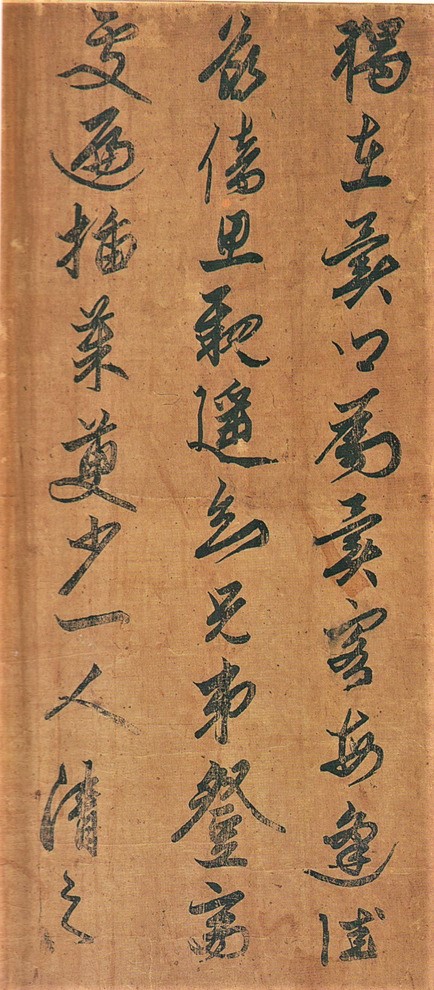 獨在異鄉為異客每逢佳
節倍思親遙知兄弟登高
處遍插茱萸少一人清之